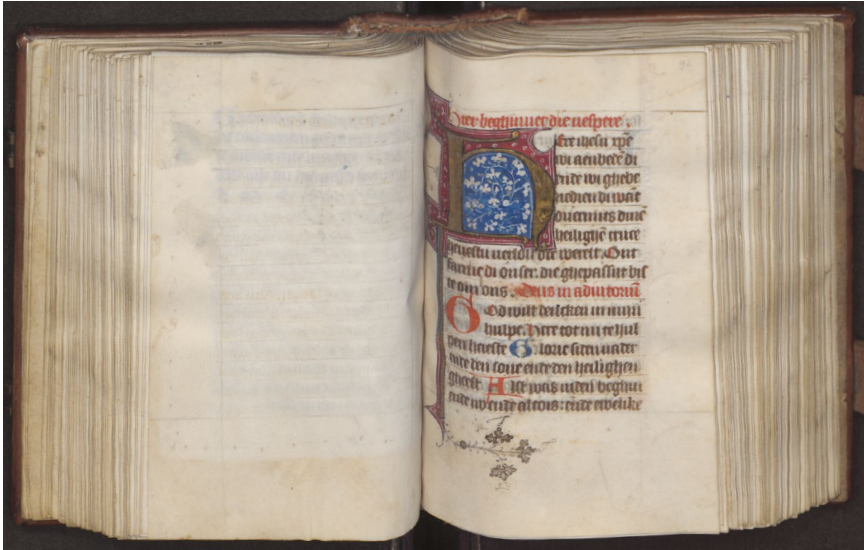 Hier beghinnet die vespere.
Here ihesu xpe
wi aenbede di
ende wi gheve
benedien di wāt
overmits dinē
heilighē cruce
hevestu die werelt. Ont
di onser. die ghepassiit bis
te om ons. Deus in adiutoriū
God wilt dencken in mijn
hulpe. Here tot mi te hul
pen haeste Glorie si den vader
ende den sone ende den heilighen
gheest Alst was in den beghin
ende nu ende altoes: ende ewelike